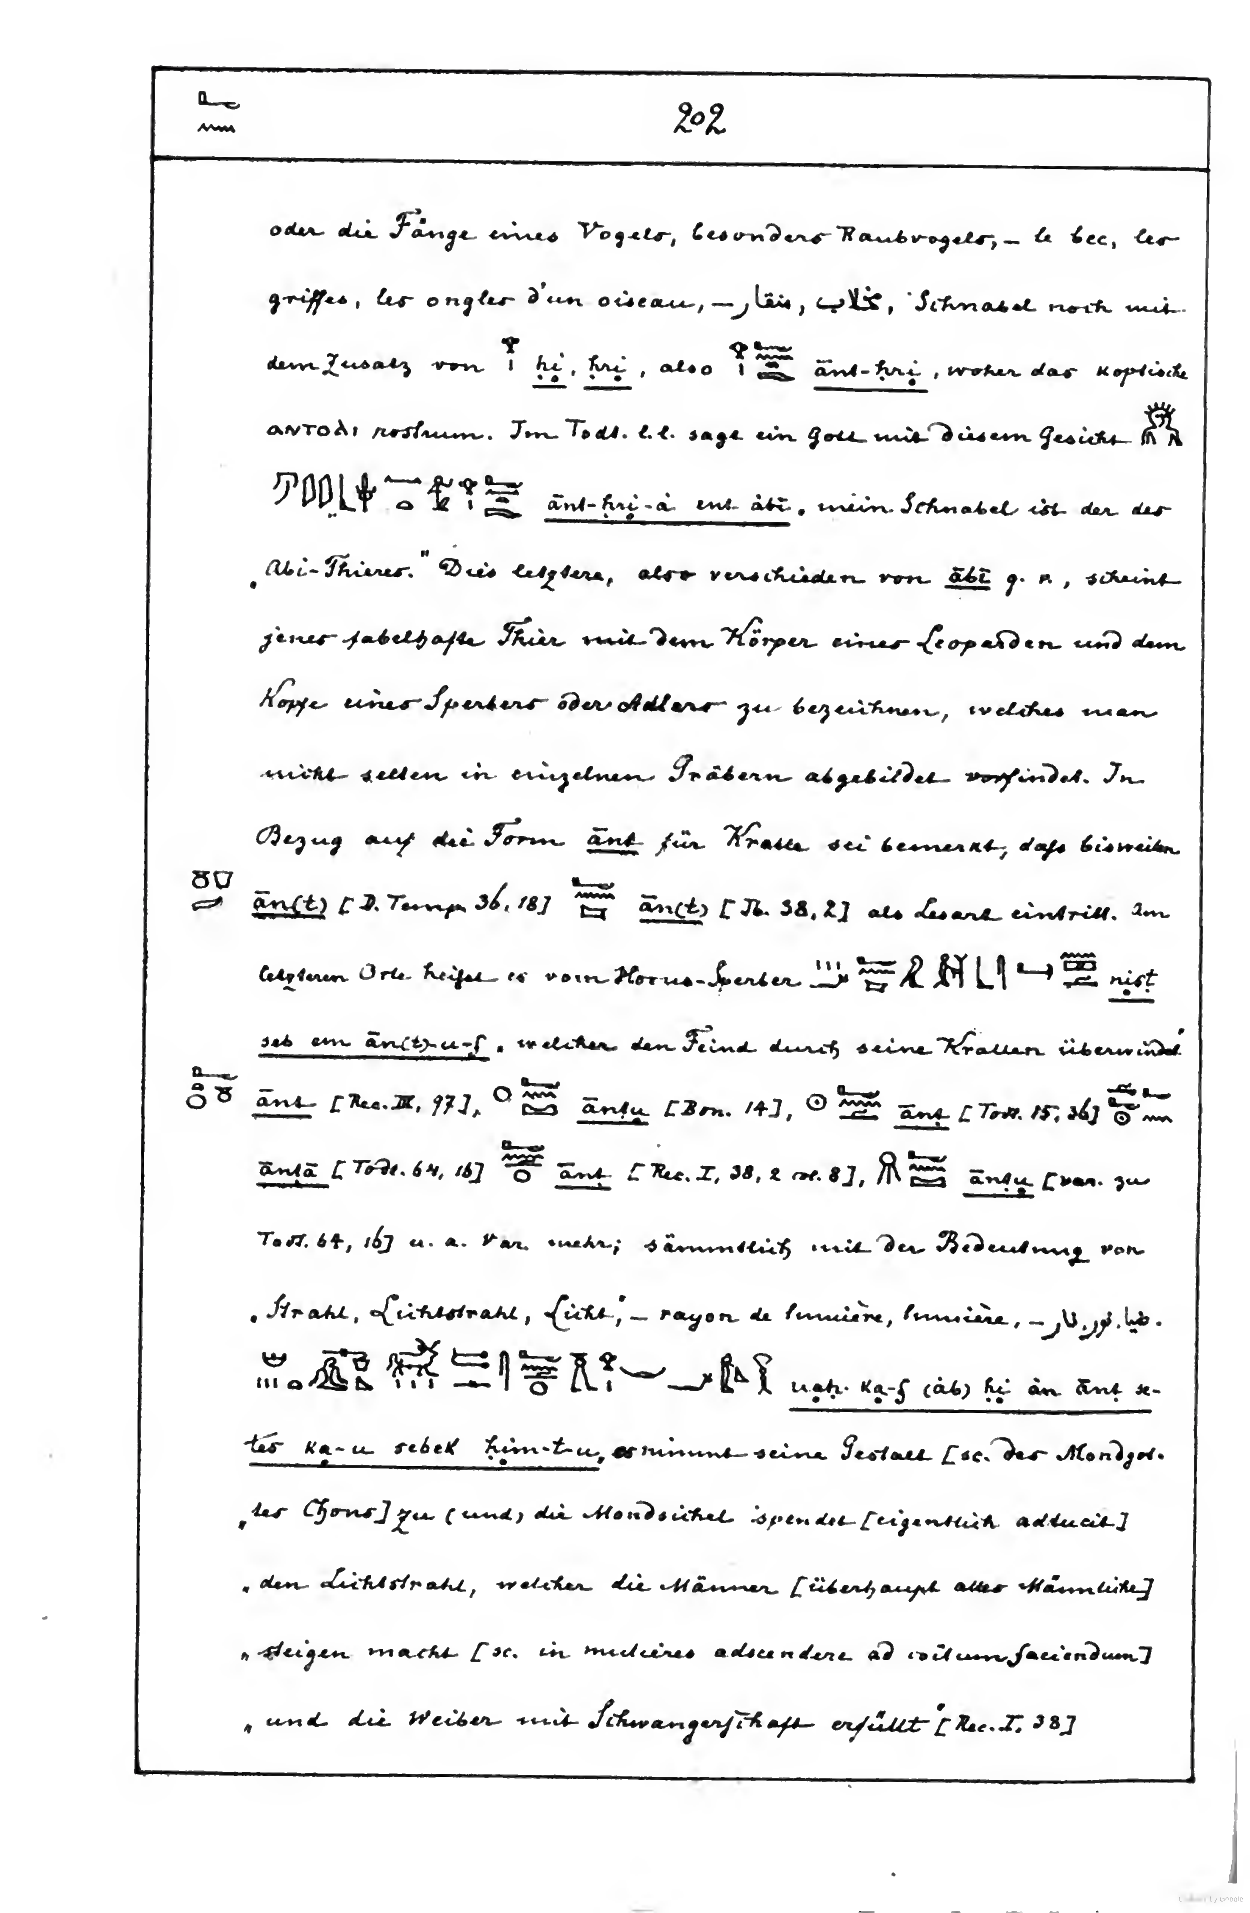 202
oder die Fänge eines Vogels, besonders Raubvogels, – le bec, les
griffes, les ongles d'un oiseau, – منقار, مخلاب, Schnabel noch mit
dem Zusatz von ḥi, ḥri, also ānt-ḥri, woher das koptische
ⲁⲛⲧⲟⲗⲓ rostrum. Im Todt. l.l. sagt ein Gott mit diesem Gesicht
ānt-ḥri-à ent àbī „mein Schnabel ist der des
„Abi-Thieres." Dies letztere, also verschieden von ābī q. v., scheint
jenes fabelhafte Thier mit dem Körper eines Leoparden und dem
Kopfe eines Sperbers oder Adlers zu bezeichnen, welches man
nicht selten in einzelnen Gräbern abgebildet vorfindet. In
Bezug auf die Form ānt für Kralle sei bemerkt, daſs bisweilen
ān(t) [D. Temp. 36, 18] ān(t) [Jb. 38, 2] als Lesart eintritt. Am
letzteren Orte heiſst es vom Horus-Sperber ništ
seb em ān(t)-u-f „welcher den Feind durch seine Krallen überwindet"
ānt [Rec. III, 97], āntu [Bon. 14], ānt [Todt. 15, 36]
āntā [Todt. 64, 16] ānt [Rec. I, 38, 2 col. 8], āntu [var. zu
Todt. 64, 16] u. a. Var. mehr; sämmtlich mit der Bedeutung von
„Strahl, Lichtstrahl, Licht", – rayon de lumière, lumière, – ضيا. نور. نار.
uaḥ ka-f (àb) ḥi àn ānt se-
tes ka-u sebek ḥim-t-u, „es nimmt seine Gestalt [sc. des Mondgot-
„tes Chons] zu (und) die Mondsichel spendet [eigentlich adducit]
„den Lichtstrahl, welcher die Männer [überhaupt alles Männliche]
„steigen macht [sc. in mulieres adscendere ad coitum faciendum]
„und die Weiber mit Schwangerschaft erfüllt" [Rec. I, 38]